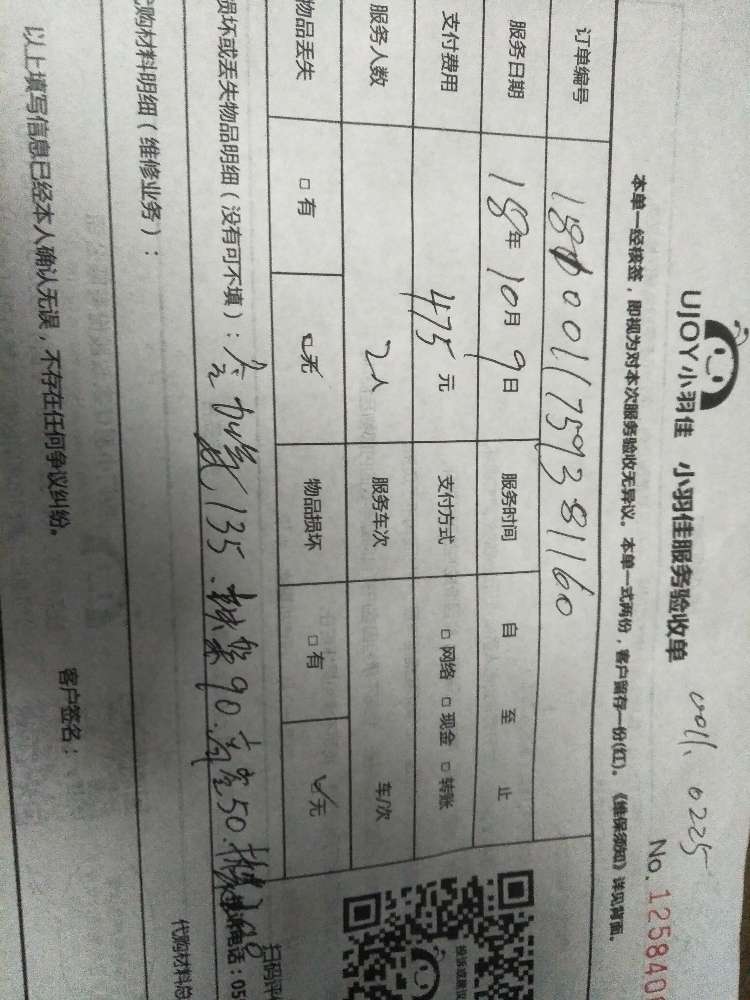 UJOY小羽佳 小羽佳服务验收单
0011、0225
No. 125840
本单一经核签，即视为对本次服务验收无异议。本单一式两份，客户留存一份(红)。《维保须知》详见背面。
订单编号
服务日期 18年10月9日 服务时间 自 至 止
支付费用 475元 支付方式 □网络 □现金 □转账
服务人数 2人 服务车次 车/次
物品丢失 □有 □无 物品损坏 □有 □无
损坏或丢失物品明细（没有可不填）： 135. 90. 高空50.
电话：05
扫码评
购材料明细（维修业务）：
代购材料总
以上填写信息已经本人确认无误，不存在任何争议纠纷。
客户签名：